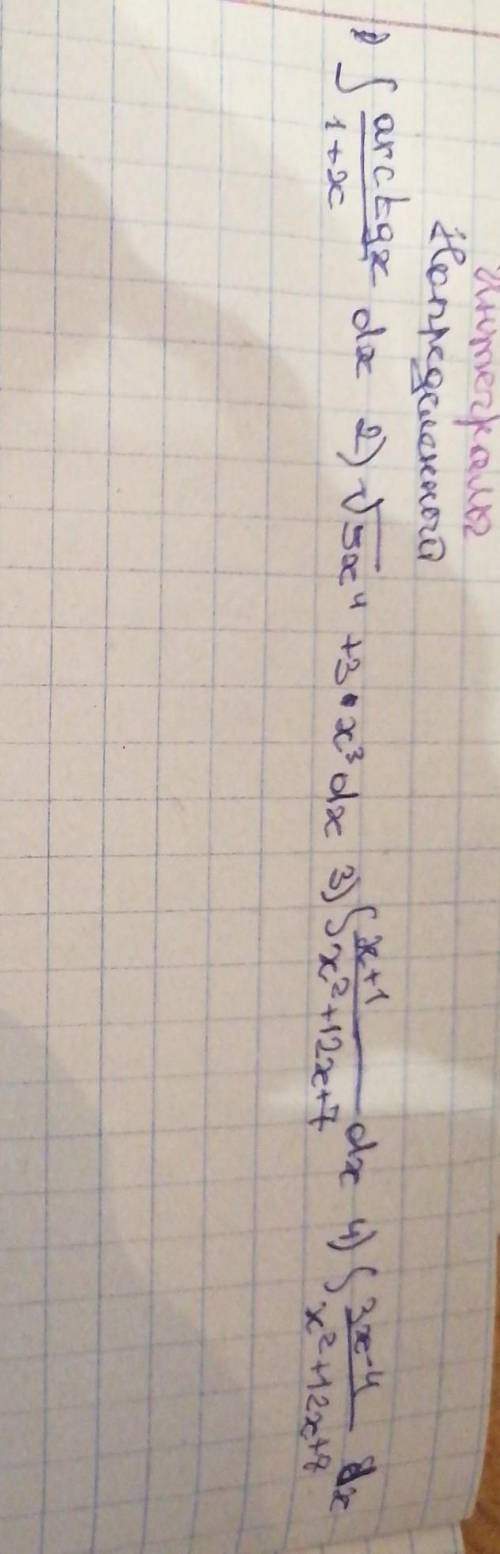 Интегралы
Неопределенный
1) ∫ arctgx / 1+x dx 2) √5x⁴ +3•x³dx 3) ∫ x+1 / x²+12x+7 dx 4) ∫ 3x-4 / x²+12x+8 dx